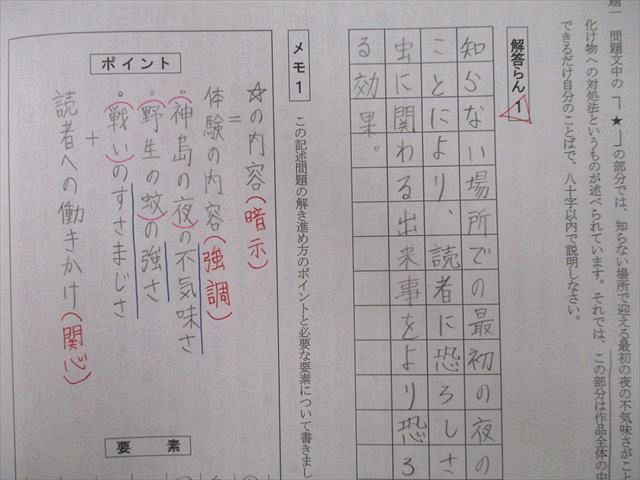 題一　問題文中の「｜★｜」の部分では、知らない場所で迎える最初の夜の不気味さがこと
化け物への対処法というものが述べられています。それでは、この部分は作品全体の中
できるだけ自分のことばで、八十字以内で説明しなさい。
解答らん1
知らない場所での最初の夜の
ことにより、読者に恐ろしさ
虫に関わる出来事をより恐ろ
る効果。
メモ1
この記述問題の解き進め方のポイントと必要な要素について書きまし
ポイント
☆の内容(暗示)
＝
体験の内容(強調)
・神島の夜の不気味さ
・野生の蚊の強さ
・戦いのすさまじさ
＋
読者への働きかけ(関心)
要素